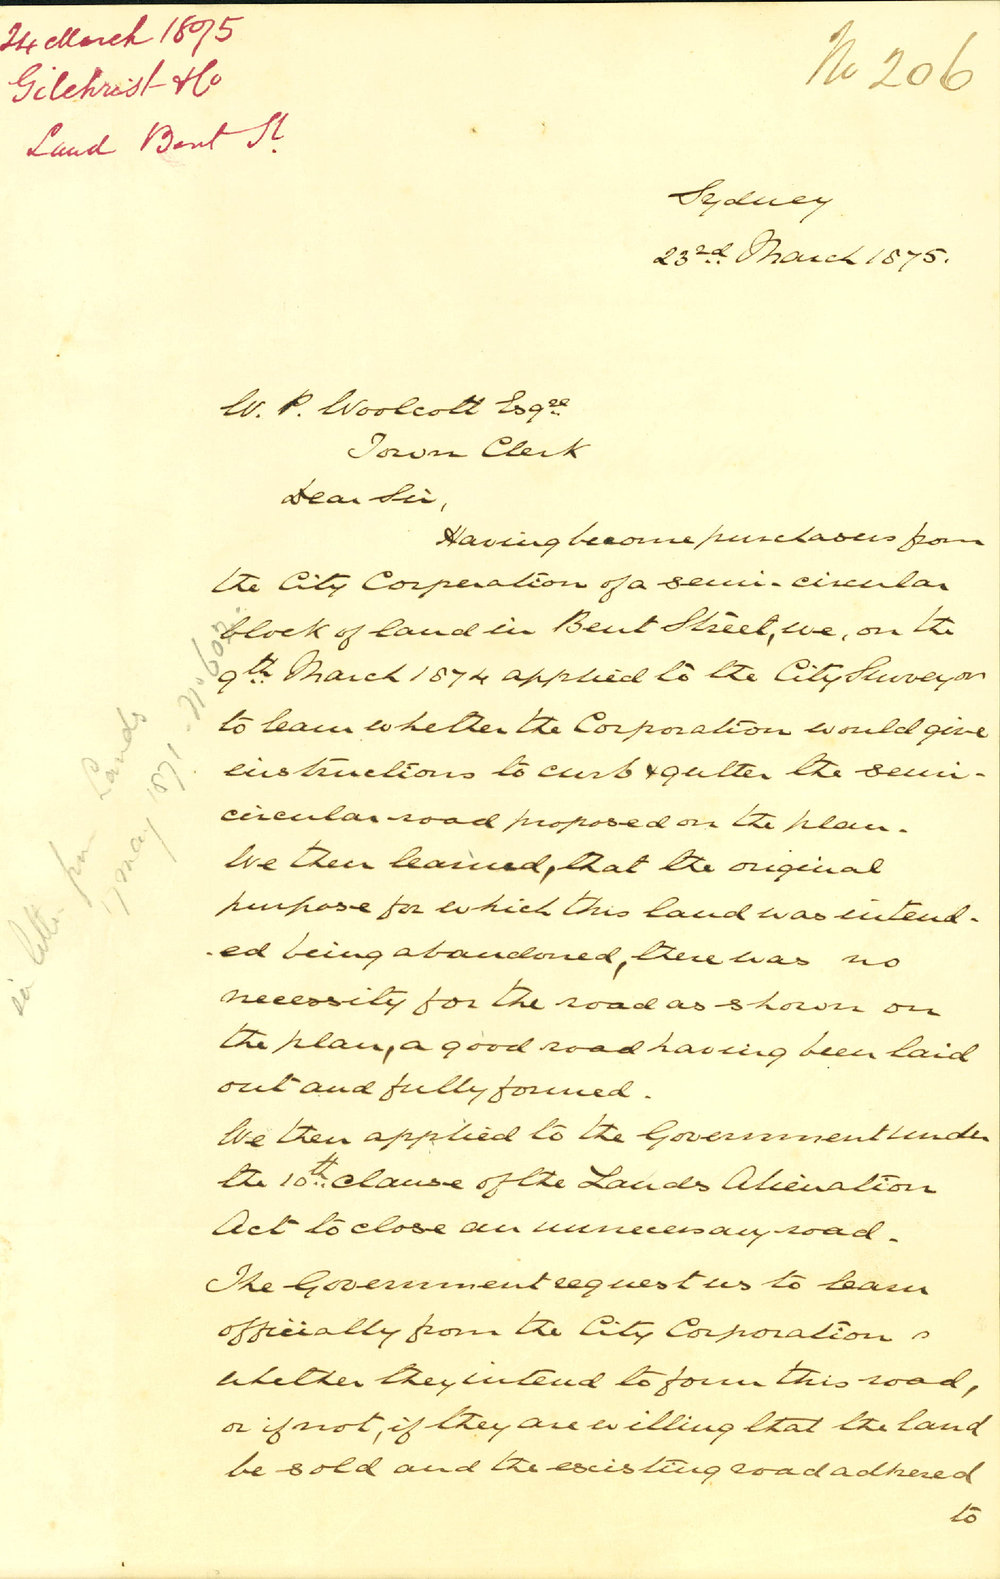 24 March 1875
Gilchrist & Co
Land Bent St.
No 206
Sydney
23rd March 1875.
W. P. Woolcott Esqre
Town Clerk
Dear Sir,
Having become purchasers from
the City Corporation of a semi-circular
block of land in Bent Street, we, on the
9th March 1874 applied to the City Surveyor
to learn whether the Corporation would give
instructions to curb & gutter the semi-
circular road proposed on the plan.
We then learned, that the original
purpose for which this land was intend-
-ed being abandoned, there was no
necessity for the road as shown on
the plan, a good road having been laid
out and fully formed.
We then applied to the Government under
the 10th clause of the Lands Alienation
Act to close an unnecessary road.
The Government request us to learn
officially from the City Corporation
whether they intend to form this road,
or if not, if they are willing that the land
be sold and the existing road adhered
to
letter from Lands
May 1871. No 602